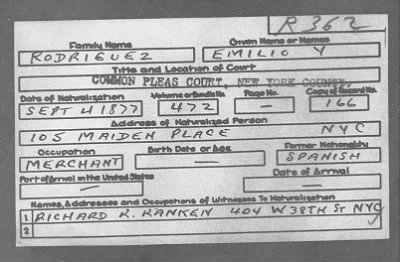 R 362
Family Name Given Name or Names
RODRIGUEZ EMILIO Y
Title and Location of Court
COMMON PLEAS COURT, NEW YORK COUNTY
Date of Naturalization Volume or Bundle No. Page No. Copy of Record No.
SEPT 4 1877 472 — 166
Address of Naturalized Person
105 MAIDEN PLACE NYC
Occupation Birth Date or Age Former Nationality
MERCHANT — SPANISH
Port of Arrival in the United States Date of Arrival
— —
Names, Addresses and Occupations of Witnesses To Naturalization
1 RICHARD R. RANKEN 404 W 38TH ST NYC
2